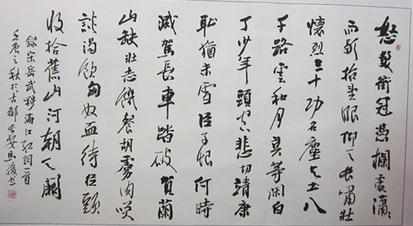 怒髮衝冠憑欄處瀟
雨歇抬望眼仰天長嘯壯
懷烈三十功名塵與土八
千路雲和月莫等閒白
了少年頭空悲切靖康
恥猶未雪臣子恨何時
滅駕長車踏破賀蘭
山缺壯志饑餐胡虜肉笑
談渴飲匈奴血待從頭
收拾舊山河朝天闕
錄宋岳武穆滿江紅詞一首
之秋於古都長安馬書